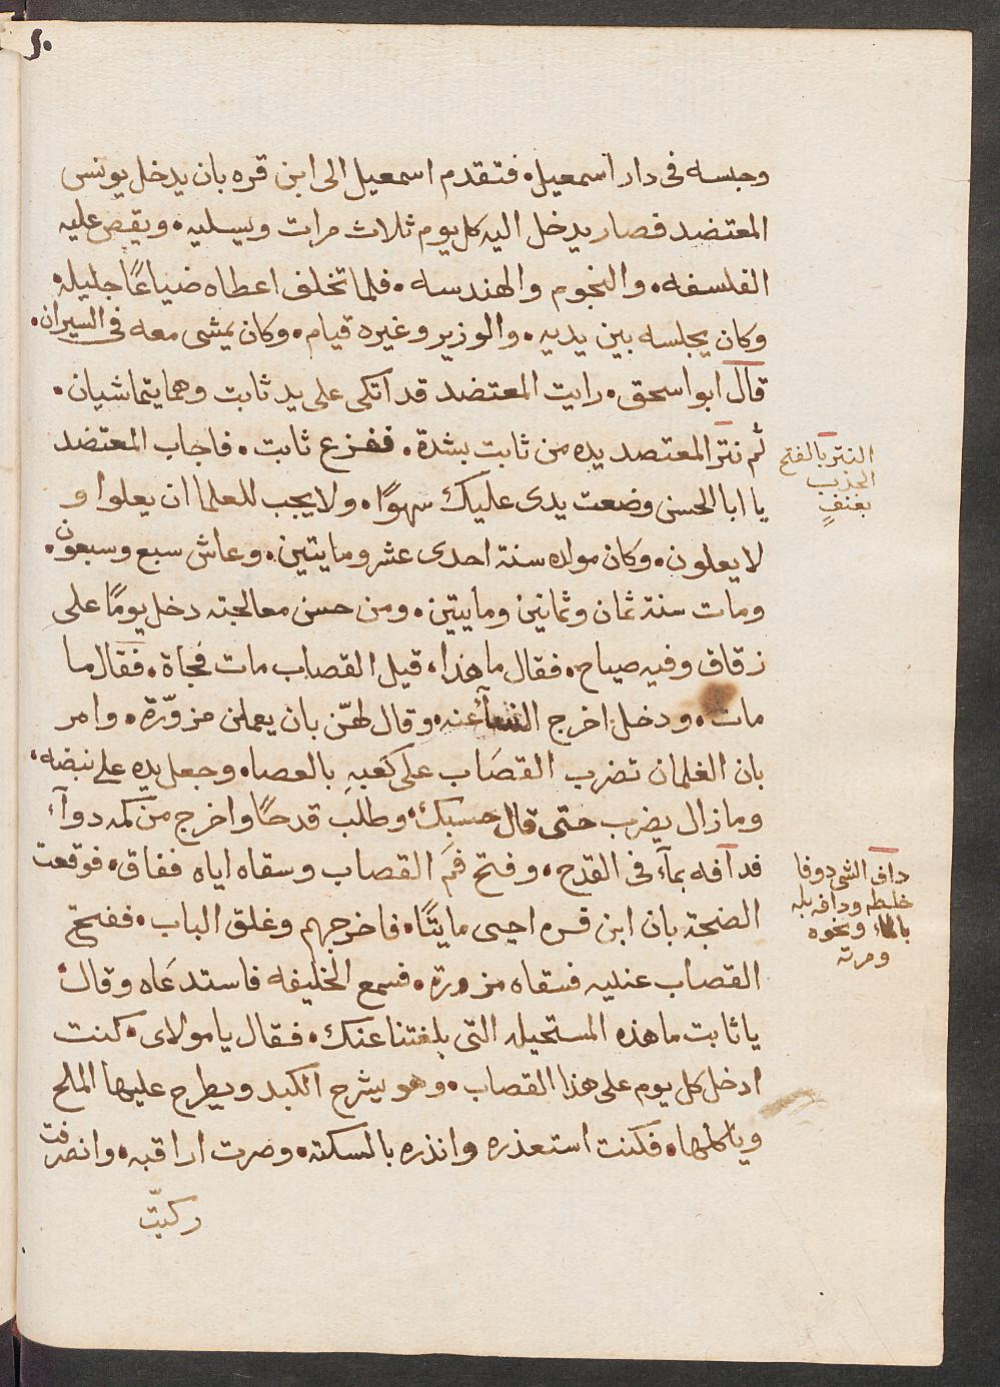 ٢٠
وحبسه فى دار اسمعيل. فتقدم اسمعيل الى ابن قره بان يدخل يونس
المعتضد فصار يدخل اليه كل يوم ثلاث مرات ويسليه. ويقص عليه
الفلسفه. والنجوم والهندسه. فلما تخلف اعطاه ضياعًا جليله.
وكان يجلسه بين يديه. والوزير وغيره قيام. وكان يمشى معه فى السيران.
قال ابو اسحق. رايت المعتضد قد اتكى على يد ثابت وهما يتماشيان.
ثم نتر المعتصد يده من ثابت بشدة. ففزع ثابت. فاجاب المعتضد
يا ابا الحسن وضعت يدى عليك سهوًا. ولا يجب للعلما ان يعلوا و
لا يعلون. وكان مولده سنة احدى عشر ومايتين. وعاش سبع وسبعون.
ومات سنة ثمان وثمانين ومايتين. ومن حسن معالجته دخل يومًا على
زقاق وفيه صياح. فقال ما هذا. قيل القصاب مات فجاة. فقال ما
مات. ودخل اخرج النسآ عنه. وقال لهنّ بان يعملن مزوّرة. وامر
بان الغلمان تضرب القصَاب على كعبهِ بالعصا. وجعل يده على نبضه.
وما زال يضرب حتى قال حسبك. وطلب قدحًا واخرج من كمه دوآء
فدآفه بمآء فى القدح. وفتح فمَ القصاب وسقاه اياه ففاق. فوقعت
الضجة بان ابن قره احيى مايتًا. فاخرجهم وغلق الباب. ففتح
القصاب عنليه فسقاه مزورة. فسمع الخليفه فاستدعَاه وقال
يا ثابت ما هذه المستحيله التى بلغتنا عنك. فقال يا مولاى. كنت
ادخل كل يوم على هذا القصاب. وهو يشرح الكبد ويطرح عليها الملح
وياكلها. فكنت استعذره وانذره بالسكته. وصرت اراقبه. وانصرفت
ركبتّ
النتر بالفتح
الجذب
بعنفٍ
داف الشى دوفا
خلطه ودافه بله
بالماء ونحوه
ومرته